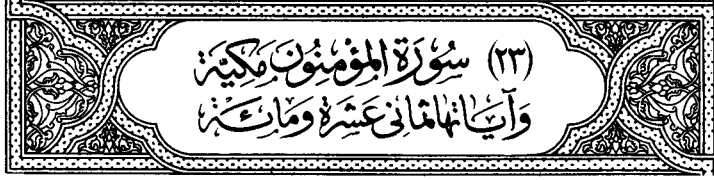 (٢٣) سُورَةُ المؤمِنُونَ مَكِيَّة
وَآيَاتهَا ثمَانى عَشرَة وَمَائَة